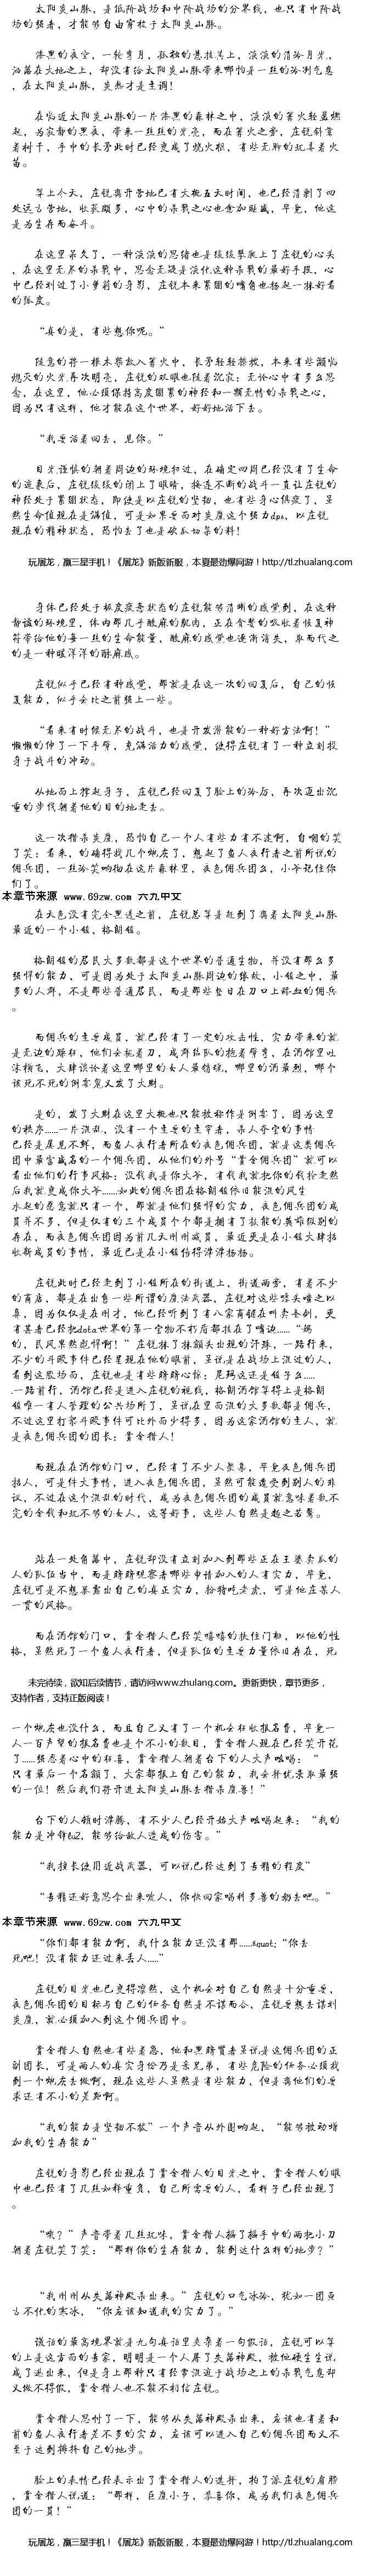 太阳炎山脉，是低阶战场和中阶战场的分界线，也只有中阶战
场的强者，才能够自由穿梭于太阳炎山脉。
漆黑的夜空，一轮弯月，孤独的悬挂其上，淡淡的清冷月光，
洒落在大地之上，却没有给太阳炎山脉带来哪怕是一丝的冷冽气息
，在太阳炎山脉，炎热才是主调！
在临近太阳炎山脉的一片漆黑的森林之中，淡淡的篝火轻盈燃
起，为寂静的黑夜，带来一丝丝的光亮，而在篝火之旁，庄锐斜靠
着树干，手中的长矛此时已经变成了烧火棍，有些无聊的玩弄着火
苗。
算上今天，庄锐离开营地已有大概五天时间，也已经清剿了四
处远古营地，收获颇多，心中的杀戮之心也愈加旺盛，毕竟，他这
是为生存而奋斗。
在这里呆久了，一种淡淡的思绪也是缓缓攀爬上了庄锐的心头
，在这里无尽的杀戮中，思念无疑是淡化这种杀戮的最好手段，心
中已经划过了小萝莉的身影，庄锐本来紧绷的嘴角也扬起一抹好看
的弧度。
“真的是，有些想你呢。”
随意的将一根木柴放入篝火中，长矛轻轻撩拨，本来有些濒临
熄灭的火光再次明亮，庄锐的双眼也随着沉寂：无论心中有多么思
念，在这里，他必须保持高度绷紧的神经和一颗无情的杀戮之心，
因为只有这样，他才能在这个世界，好好地活下去。
“我要活着回去，见你。”
目光谨慎的朝着周边的环境扫过，在确定四周已经没有了生命
的迹象后，庄锐缓缓的闭上了眼睛，接连不断的战斗一直让庄锐的
神经处于紧绷状态，即使是以庄锐的坚韧，也有些身心俱疲了，虽
然生命值现在是满值，可是如果要面对炎魔这个强力dps，以庄锐
现在的精神状态，恐怕去了也是砍瓜切菜的料！
玩屠龙，赢三星手机！《屠龙》新版新服，本夏最劲爆网游！http://tl.zhualang.com
身体已经处于极度疲惫状态的庄锐能够清晰的感觉到，在这种
静谧的环境里，体内那几乎酸麻的肌肉，正在贪婪的吸收着恢复神
符带给他的每一丝的生命能量，酸麻的感觉也逐渐消失，取而代之
的是一种暖洋洋的酥麻感。
庄锐似乎已经有种感觉，那就是在这一次的回复后，自己的恢
复能力，似乎会比之前强上一些。
“看来有时候无尽的战斗，也是开发潜能的一种好方法啊！”
懒懒的伸了一下手臂，充满活力的感觉，使得庄锐有了一种立刻投
身于战斗的冲动。
从地面上撑起身子，庄锐已经回复了脸上的冷厉，再次迈出沉
重的步伐朝着他的目的地走去。
这一次猎杀炎魔，恐怕自己一个人有些力有不逮啊，自嘲的笑
了笑：看来，的确得找几个炮灰了，想起了鱼人夜行者之前所说的
佣兵团，一丝冷笑响彻在这片森林里，夜色佣兵团么，小爷记住你
们了。
本章节来源 www.69zw.com 六九中文
在天色没有完全黑透之前，庄锐总算是赶到了离着太阳炎山脉
最近的一个小镇，格朗镇。
格朗镇的居民大多数都是这个世界的普通生物，并没有那么多
强悍的能力，可是因为处于太阳炎山脉周边的缘故，小镇之中，最
多的人群，不是那些普通居民，而是那些整日在刀口上舔血的佣兵
。
而佣兵的主要成员，就已经有了一定的攻击性，实力带来的就
是无边的骄狂，他们会扛着刀，成群结队的抱着臂弯，在酒馆里吐
沫横飞，大肆谈论着这里哪里的女人最销魂，哪里的酒最烈，哪个
该死不死的倒霉鬼又发了大财。
是的，发了大财在这里大概也只能被称作是倒霉了，因为这里
的秩序……一片混乱，没有一个主要的主宰者，杀人夺宝的事情
已经是屡见不鲜，而鱼人夜行者所在的夜色佣兵团，就是这类佣兵
中最富盛名的一个佣兵团，从他们的外号“赏金佣兵团”就可以
看出他们的行事风格：没钱我是你大爷，有钱我就把你的钱抢走然
后我就变成你大爷……如此的佣兵团在格朗镇依旧能混的风生
水起的愿意就只有一个，那就是他们强悍的实力，夜色佣兵团的成
员并不多，但是仅有的三个成员个个都是拥有了技能的英雄级别的
存在，而夜色佣兵团因为前几天刚刚减员，最近更是在小镇大肆招
收新成员的事情，最近已是在小镇传得沸沸扬扬。
庄锐此时已经走到了小镇所在的街道上，街道两旁，有着不少
的商店，都是在出售一些所谓的魔法武器，庄锐对这些嗤头嗤之以
鼻，因为仅仅是在刚才，他已经听到了有八家商铺在叫卖圣剑，更
有甚者已经把dota世界的第一宝物不朽盾都挂在了嘴边……“妈
的，民风果然彪悍啊！”庄锐抹了抹额头出现的汗珠，一路行来，
不少的斗殴事件已经呈现在他的眼前，虽说是在战场上混过的人，
看到这般场面，庄锐也是有些暗暗心惊：尼玛这还是镇子么……
.一路前行，酒馆已经是进入庄锐的视线，格朗酒馆算得上是格朗
镇唯一有人管理的公共场所了，虽说在里面混的大多数都是佣兵，
不过这里打架斗殴事件可比外面少得多，因为这家酒馆的主人，就
是夜色佣兵团的团长：赏金猎人！
而现在在酒馆的门口，已经有了不少人聚集，毕竟夜色佣兵团
招人，可是件大事情，进入夜色佣兵团，虽然可能遭受到别人的非
议，不过在这个混乱的时代，成为夜色佣兵团的成员就意味着数不
完的金钱和玩不够的女人，这等好事，这些人自然是趋之若鹜。
站在一处角落中，庄锐却没有立刻加入到那些正在王婆卖瓜的
人的队伍当中，而是暗暗观察者哪些申请加入的人有实力，毕竟，
庄锐可是不想暴露出自己的真正实力，扮猪吃老虎，可是他在某人
一贯的风格。
而在酒馆的门口，赏金猎人已经笑嘻嘻的扶住门框，以他的性
格，虽然死了一个鱼人夜行者，但是队伍的主要力量依旧存在，死
未完待续，欲知后续情节，请访问www.zhulang.com。更新更快，章节更多，
支持作者，支持正版阅读！
一个炮灰也没什么，而且自己又有了一个机会狂收报名费，毕竟一
人一百声望的报名费也是个不小的数目，赏金猎人现在已经笑开花
了……强忍着心中的狂喜，赏金猎人朝着台下的人大声吆喝：“
只有最后一个名额了，大家都报上自己的能力，我会择优录取最强
的一位！然后我们将开进太阳炎山脉去猎杀魔兽！”
台下的人顿时沸腾，有不少人已经开始大声吆喝起来：“我的
能力是冲锋lv2，能够给敌人造成的伤害。”
“我擅长使用近战武器，可以说已经达到了专精的程度”
“专精还好意思拿出来唬人，你快回家喝利多兽的奶去吧。”
本章节来源 www.69zw.com 六九中文
“你们都有能力啊，我什么能力还没有那……&quot;“你去
死吧！没有能力还过来丢人……”
庄锐的目光也已变得凛然，这个机会对自己自然是十分重要，
夜色佣兵团的目标与自己的任务自然是不谋而合，庄锐要想去谋划
炎魔，就必须加入到这个佣兵团中。
赏金猎人自然也有些着急，他和黑暗贤者虽说是这佣兵团的正
副团长，可是两人的真实身份乃是亲兄弟，有些危险的任务必须找
到一个炮灰去做啊，现在这些人虽然是有些能力，但是离他们的要
求还有不小的差距啊。
“我的能力是坚韧不拔”一个声音从外围响起，“能够被动增
加我的生存能力”
庄锐的身影已经出现在了赏金猎人的目光之中，赏金猎人的眼
中也已经有了几丝如释重负，自己所需要的人，看样子已经出现了
。
“哦？”声音带着几丝玩味，赏金猎人摇了摇手中的两把小刀
朝着庄锐笑了笑：“那样你的生存能力，能到达什么样的地步？”
“我刚刚从失落神殿杀出来。”庄锐的口气冰冷，犹如一团亘
古不化的寒冰，“你应该知道我的实力了。”
谎话的最高境界就是九句真话里夹杂着一句假话，庄锐可以算
的上是这方面的专家，明明是一个人屠了失落神殿，被他硬生生说
成了逃出来，但是身上那种只有经常混迹于战场之上的杀戮气息却
又做不得假，赏金猎人也不能不相信庄锐。
赏金猎人思忖了一下，能够从失落神殿杀出来，应该也有着和
首的鱼人夜行者差不多的实力，应该可以进入自己的佣兵团而又不
至于达到掣肘自己的地步。
脸上的表情已经表示出了赏金猎人的选择，拍了派庄锐的肩膀
，赏金猎人说道：“那样，巨魔小子，恭喜你，成为我们夜色佣兵
团的一员！”
玩屠龙，赢三星手机！《屠龙》新版新服，本夏最劲爆网游！http://tl.zhualang.com